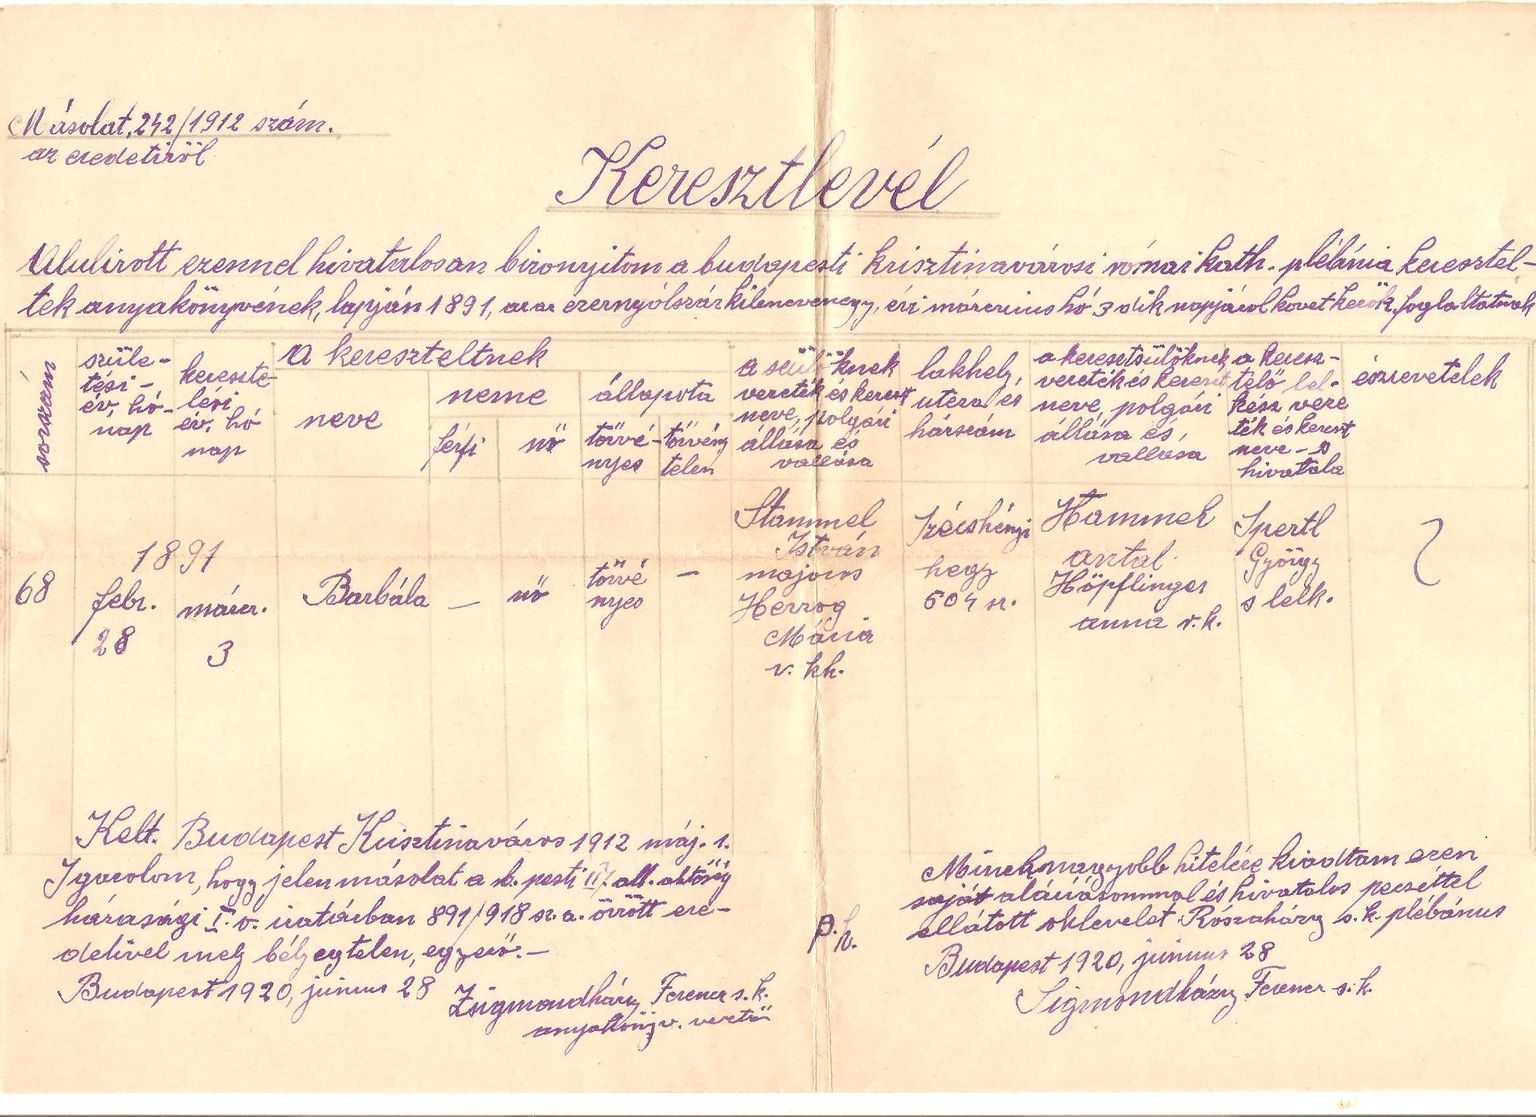 Másolat, 242/1912 szám.
az eredetiről
Keresztlevél
Alulirott ezennel hivatalosan bizonyitom a budapesti krisztinavárosi római kath. plébánia keresztel-
tek anyakönyvének, lapján 1891, azaz ezernyolszázkilencvenegy, évi március hó 3 dik napjáról következők foglaltatnak
sorszám
szüle-
tési-
év, hó-
nap
kereszte-
lési
év, hó
nap
a kereszteltnek
neve
neme
férfi
nő
állapota
törvé-
nyes
törvény
telen
a szülőknek
vezeték és kereszt
neve, polgári
állása és
vallása
lakhely,
utcza és
házszám
a keresztszülőknek
vezeték és kereszt
neve, polgári
állása és
vallása
a keresz-
telő lel-
kész veze
ték és kereszt
neve - s
hivatala
észrevételek
68
1891
febr.
28
márcz.
3
Barbála
—
nő
törvé
nyes
—
Stammel
István
majoros
Herzog
Mária
v. kh.
Széchényi
hegy
504 sz.
Hammel
antal
Höpflinger
anna r. k.
Spertl
György
s lelk.
Kelt. Budapest Krisztinaváros 1912 máj. 1.
Igazolom, hogy jelen másolat a b. pesti III. áll.
házassági I. o. irattárban 891/918 sz. a. őrzött ere-
detivel mely bélyegtelen, egyező. —
Budapest 1920, junius 28
Zsigmondházy Ferencz s. k.
anyakönyv. vezető
p. h.
Minek nagyobb hitelére kiadtam ezen
saját aláirásommal és hivatalos pecséttel
ellátott oklevelet Roszaházy s. k. plébánus
Budapest 1920, junius 28
Sigmondházy Ferencz s. k.